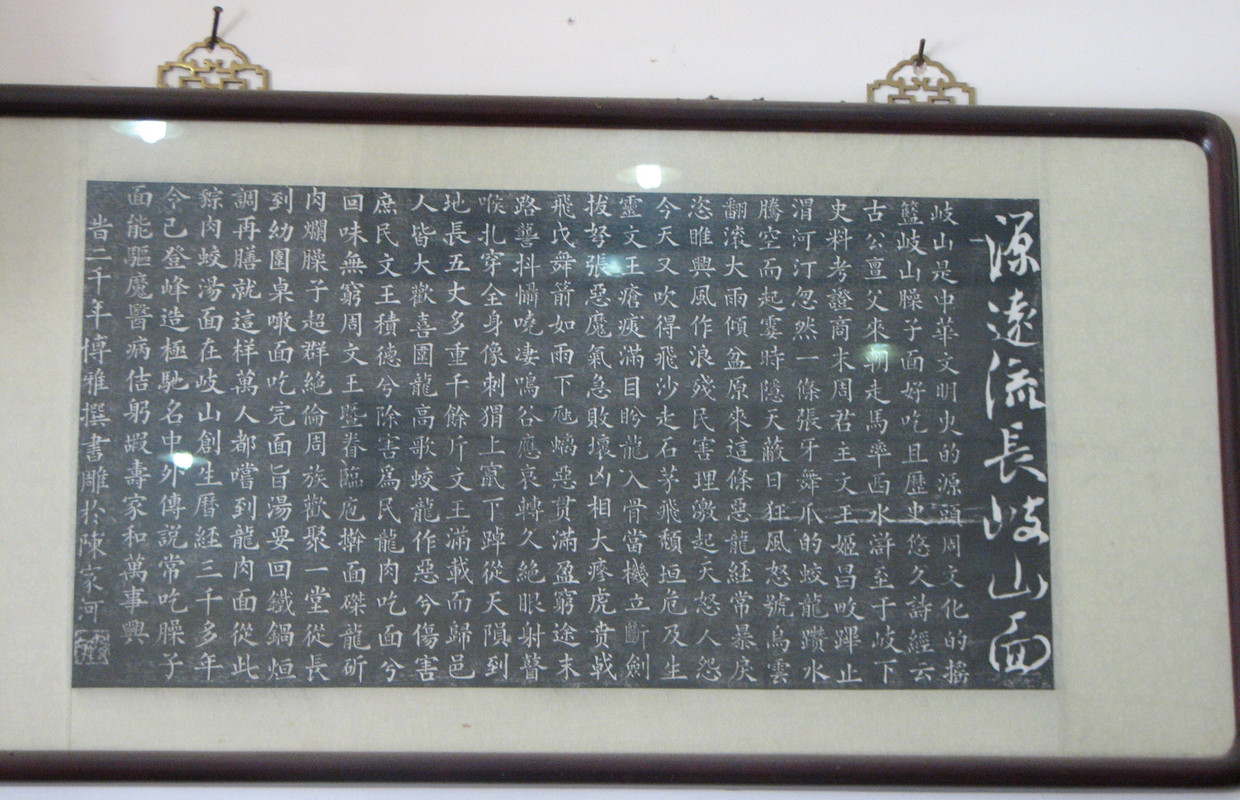 源遠流長岐山面
岐山是中華文明史的源頭周文化的搖
籃岐山臊子面好吃且歷史悠久詩經云
古公亶父來朝走馬率西水滸至于岐下
史料考證商末周君主文王姬昌畋蹕止
渭河汀忽然一條張牙舞爪的蛟龍躦水
騰空而起霎時隱天蔽日狂風怒號烏雲
翻滾大雨傾盆原來這條惡龍經常暴戾
恣睢興風作浪殘民害理激起天怒人怨
今天又吹得飛沙走石茅飛頹垣危及生
靈文王瘡痍滿目盻龍入骨當機立斷劍
拔弩張惡魔氣急敗壞凶相大瘮虎賁戟
飛戊舞箭如雨下虺螭惡貫滿盈窮途末
路讋抖懾嘵凄鳴谷應哀轉久絕眼射瞽
喉扎穿全身像刺猬上竄下踔從天隕到
地長五丈多重千餘斤文王滿載而歸邑
人皆大歡喜圍龍高歌蛟龍作惡兮傷害
庶民文王積德兮除害爲民龍肉吃面兮
回味無窮周文王暨眷臨庖擀面磔龍斫
肉爛臊子超群絕倫周族歡聚一堂從長
到幼圍桌噉面吃完面旨湯要回鐵鍋烜
調再膳就這样萬人都嚐到龍肉面從此
餘肉蛟湯面在岐山創生曆経三千多年
今已登峰造極馳名中外傳説常吃臊子
面能驅魔醫病佶躬嘏壽家和萬事興
旹二千年博雅撰書雕於陳家河